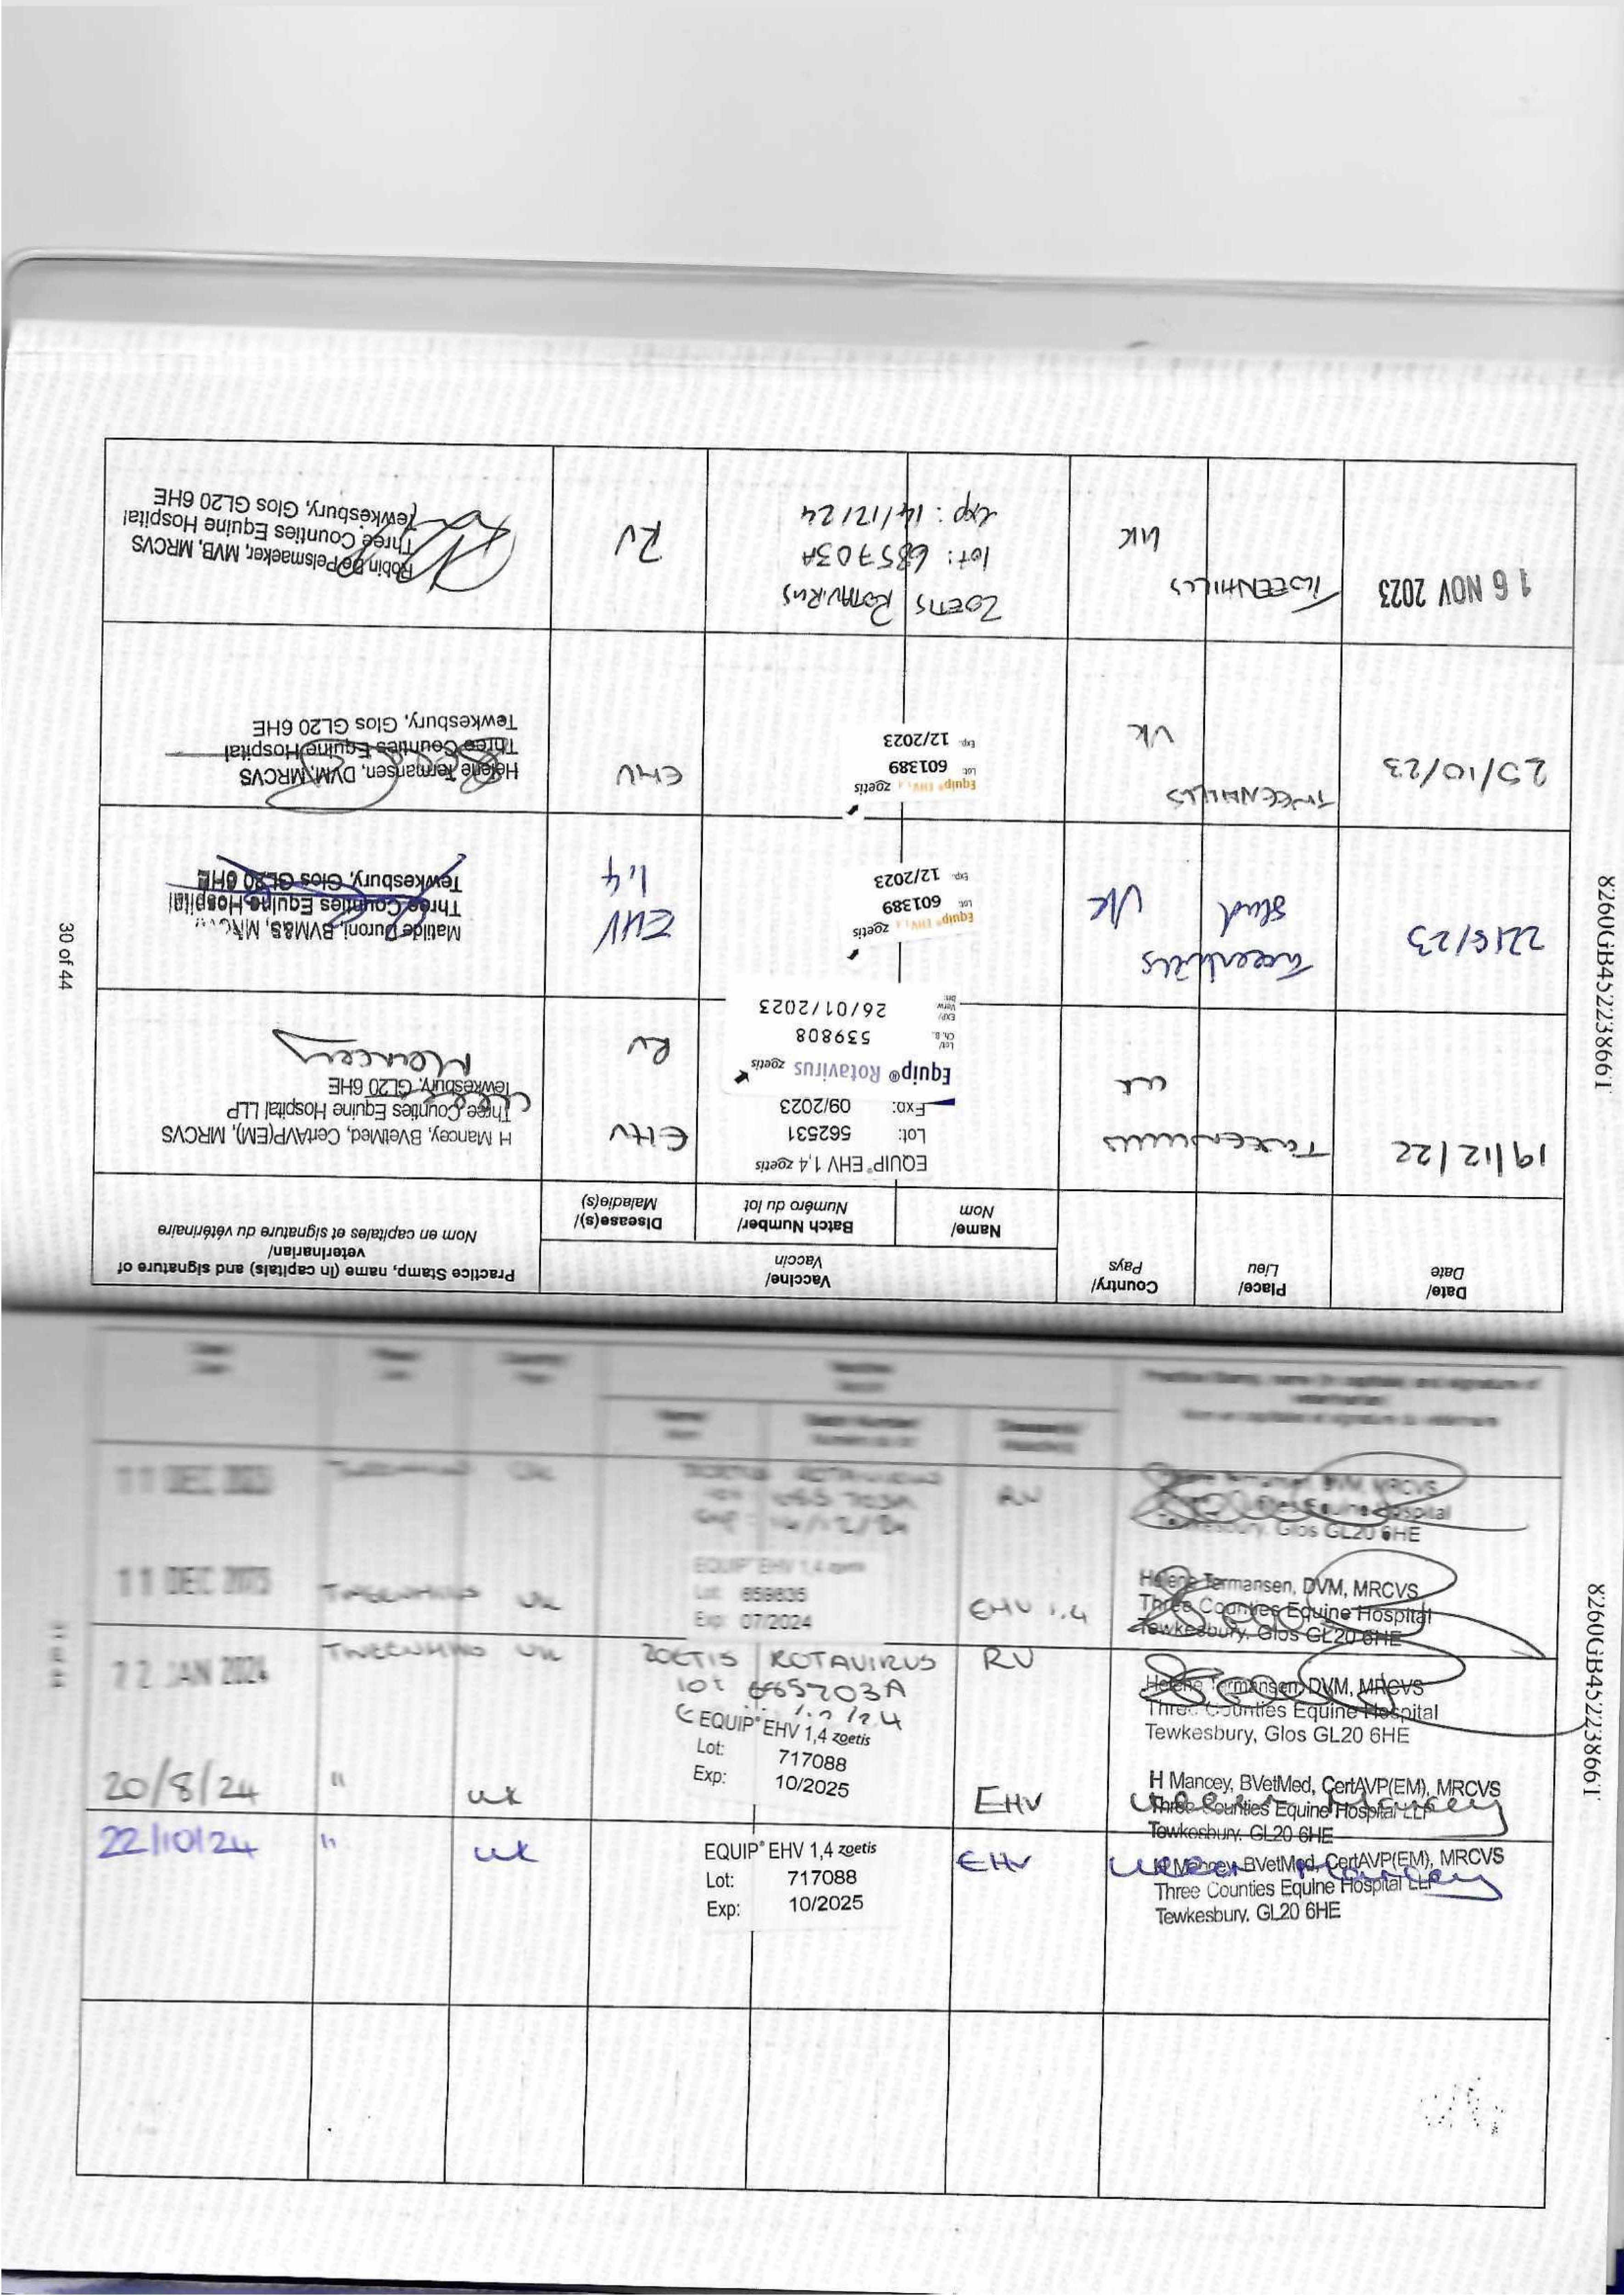 Date/
Date
Place/
Lieu
Country/
Pays
Vaccine/
Vaccin
Name/
Nom
Batch Number/
Numéro du lot
Disease(s)/
Maladie(s)
Practice Stamp, name (in capitals) and signature of
veterinarian/
Nom en capitales et signature du vétérinaire
19/12/22
Tweenhills
UK
EQUIP® EHV 1,4 zoetis
Lot: 562531
Exp: 09/2023
EHV
Equip® Rotavirus zoetis
Lot/
Ch. B.
539808
EXP/
Verw
26/01/2023
RV
H Mancey, BVetMed, CertAVP(EM), MRCVS
Three Counties Equine Hospital LLP
Tewkesbury, GL20 6HE
Mancey
22/8/23
Tweenhills
Stud
UK
Equip® EHV 1,4 zoetis
Lot: 601389
Exp. 12/2023
EHV
1,4
Matilde Duroni, BVM&S, MRCVS
Three Counties Equine Hospital
Tewkesbury, Glos GL20 6HE
25/10/23
TWEENHILLS
UK
Equip® EHV 1,4 zoetis
Lot: 601389
Exp. 12/2023
EHV
Helene Termansen, DVM, MRCVS
Three Counties Equine Hospital
Tewkesbury, Glos GL20 6HE
16 NOV 2023
TWEENHILLS
UK
ZOETIS ROTAVIRUS
lot: 685703A
exp: 14/12/24
RV
Robin De Pelsmaeker, MVB, MRCVS
Three Counties Equine Hospital
Tewkesbury, Glos GL20 6HE
30 of 44
8260GB45223866T
11 DEC
TWEENHILLS
UK
ZOETIS ROTAVIRUS
lot: 685703A
exp: 14/12/24
RV
Helene Termansen, DVM, MRCVS
Three Counties Equine Hospital
Tewkesbury, Glos GL20 6HE
11 DEC
TWEENHILLS
UK
EQUIP® EHV 1,4 zoetis
Lot: 659835
Exp: 07/2024
EHV 1.4
Helene Termansen, DVM, MRCVS
Three Counties Equine Hospital
Tewkesbury, Glos GL20 6HE
22 JAN 2024
TWEENHILLS
UK
ZOETIS ROTAVIRUS
lot 685703A
RV
Helene Termansen, DVM, MRCVS
Three Counties Equine Hospital
Tewkesbury, Glos GL20 6HE
20/8/24
"
UK
EQUIP® EHV 1,4 zoetis
Lot: 717088
Exp: 10/2025
EHV
H Mancey, BVetMed, CertAVP(EM), MRCVS
Three Counties Equine Hospital LLP
Tewkesbury, GL20 6HE
22/10/24
"
UK
EQUIP® EHV 1,4 zoetis
Lot: 717088
Exp: 10/2025
EHV
H Mancey, BVetMed, CertAVP(EM), MRCVS
Three Counties Equine Hospital LLP
Tewkesbury, GL20 6HE
8260GB45223866T